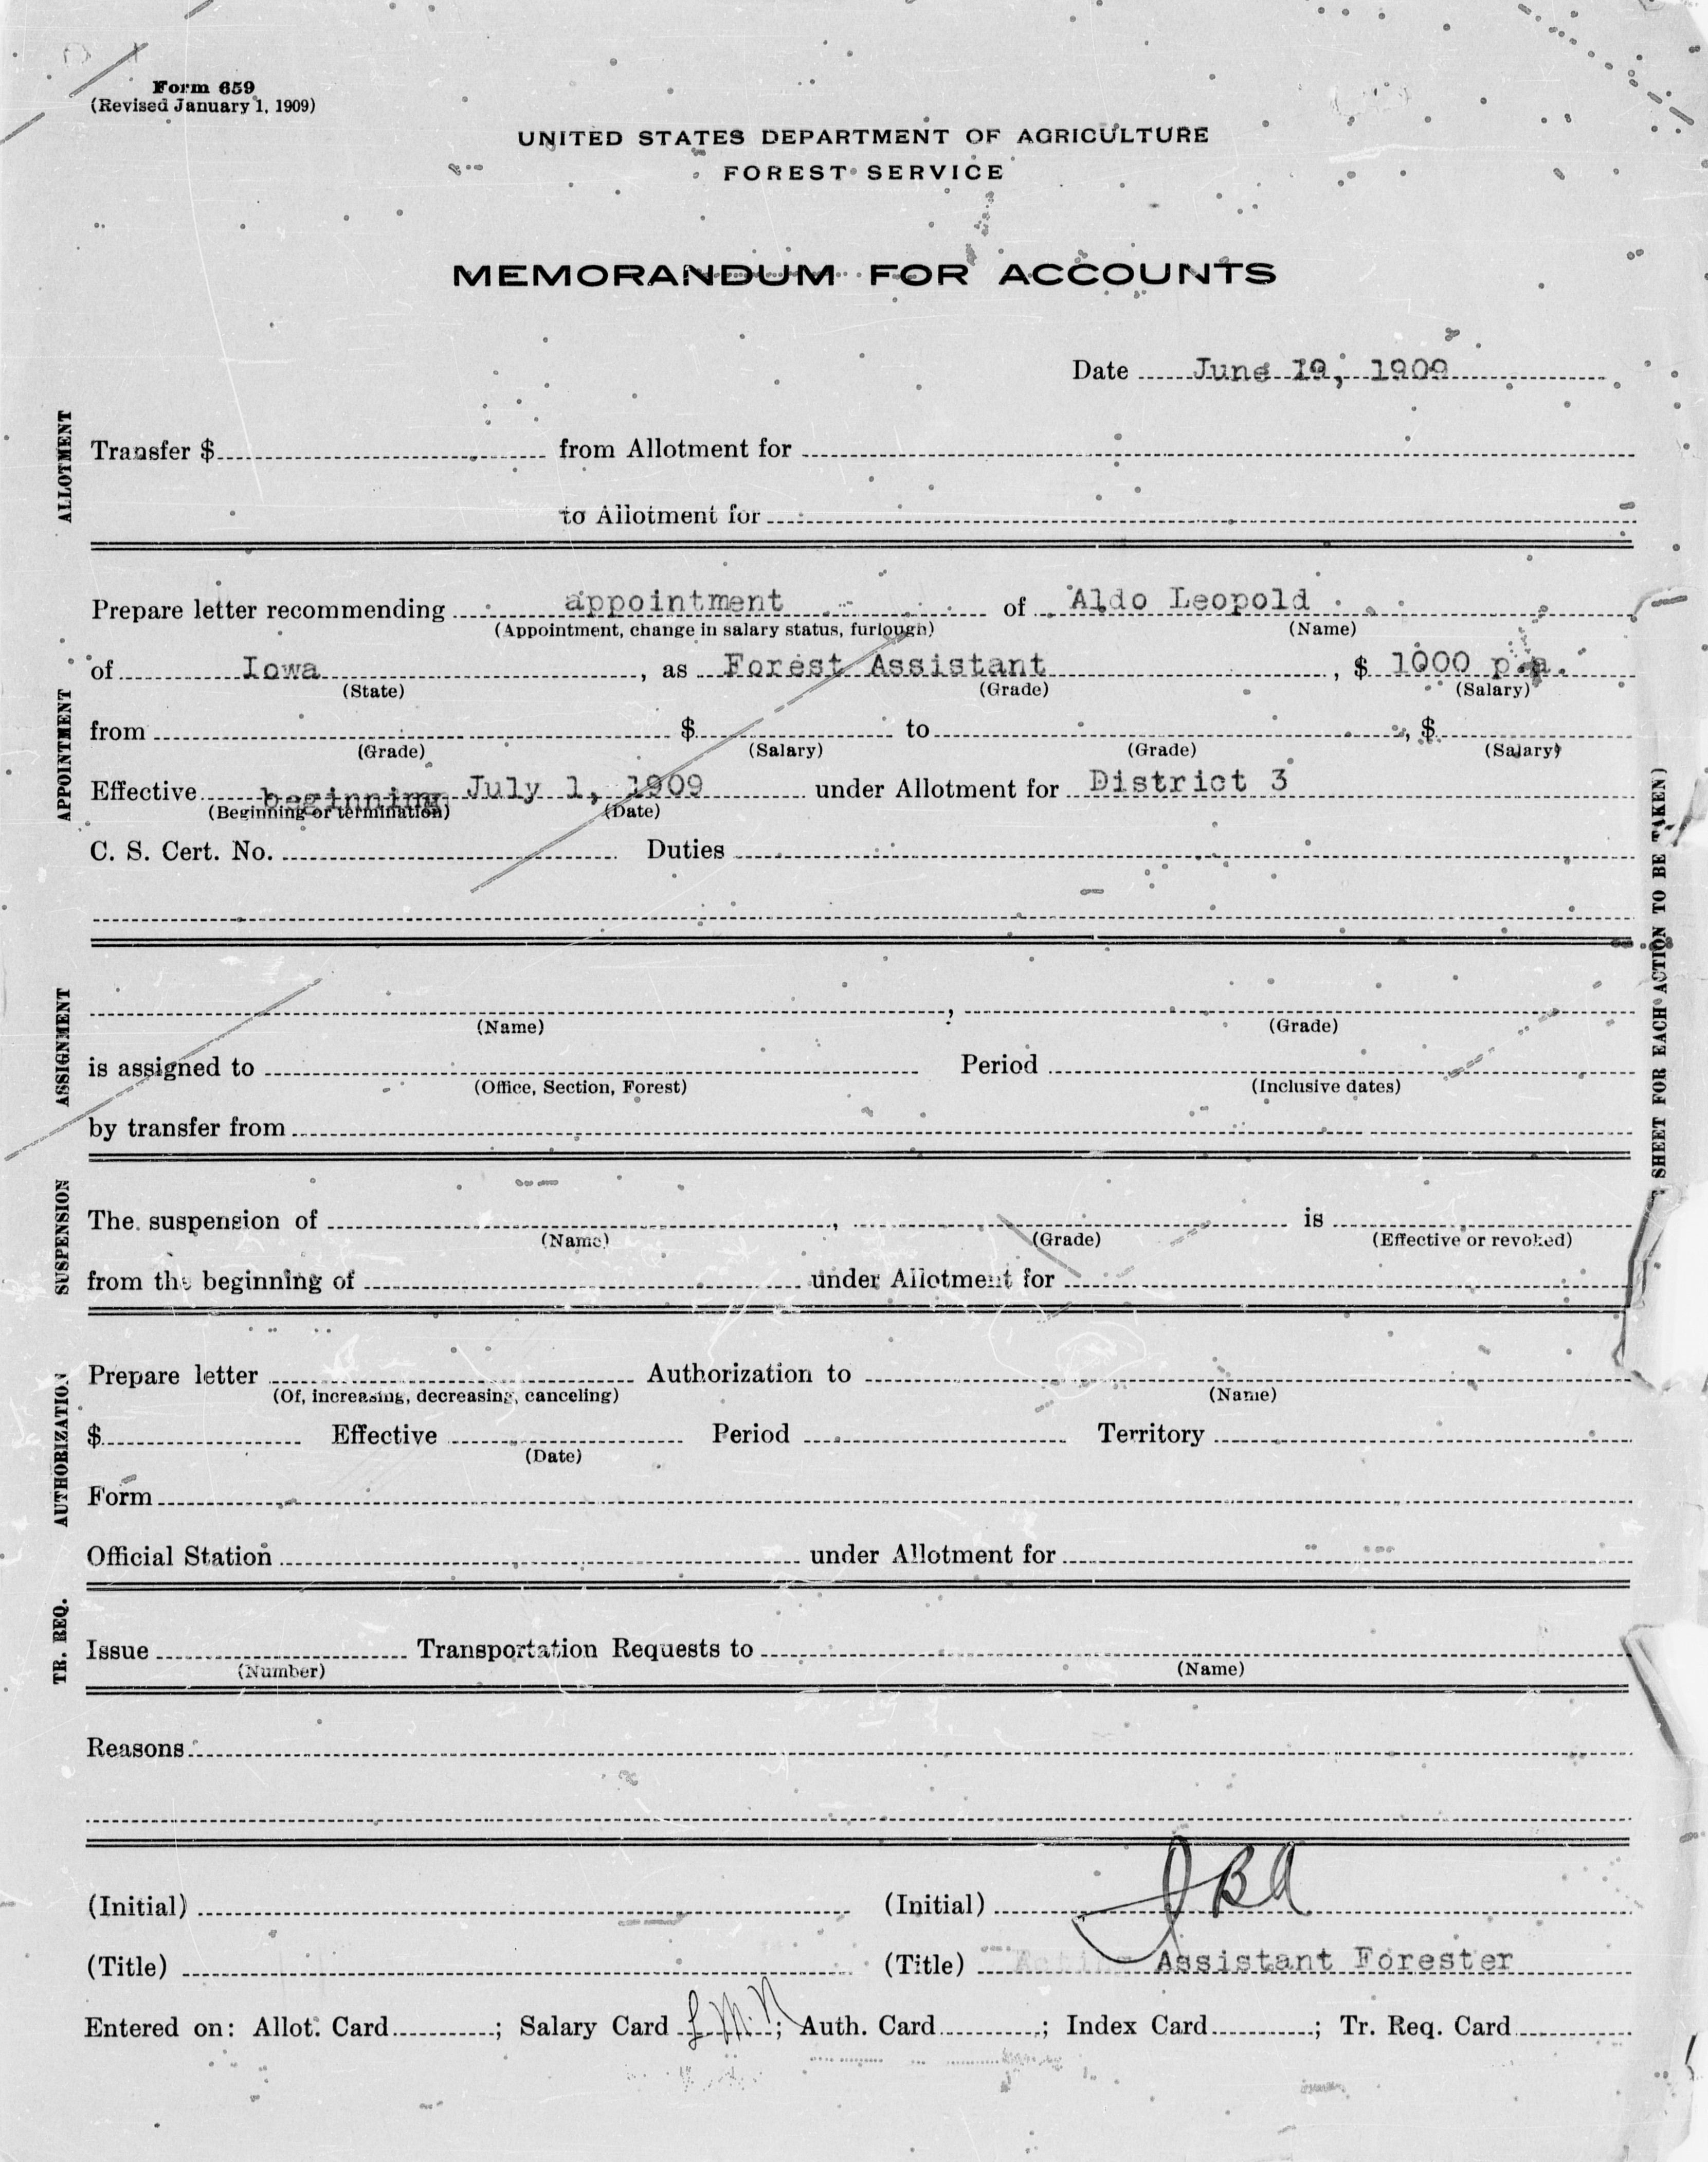 Form 659
(Revised January 1, 1909)
UNITED STATES DEPARTMENT OF AGRICULTURE
FOREST SERVICE
MEMORANDUM FOR ACCOUNTS
Date June 19, 1909
ALLOTMENT
Transfer $ from Allotment for
to Allotment for
APPOINTMENT
Prepare letter recommending appointment of Aldo Leopold
(Appointment, change in salary status, furlough) (Name)
of Iowa, as Forest Assistant, $ 1000 p.a.
(State) (Grade) (Salary)
from $ to , $
(Grade) (Salary) (Grade) (Salary)
Effective beginning July 1, 1909 under Allotment for District 3
(Beginning or termination) (Date)
C. S. Cert. No. Duties
SHEET FOR EACH ACTION TO BE TAKEN)
ASSIGNMENT
,
(Name) (Grade)
is assigned to Period
(Office, Section, Forest) (Inclusive dates)
by transfer from
SUSPENSION
The suspension of , is
(Name) (Grade) (Effective or revoked)
from the beginning of under Allotment for
AUTHORIZATION
Prepare letter Authorization to
(Of, increasing, decreasing, canceling) (Name)
$ Effective Period Territory
(Date)
Form
Official Station under Allotment for
TR. REQ.
Issue Transportation Requests to
(Number) (Name)
Reasons
(Initial) (Initial)
(Title) (Title) Acting Assistant Forester
Entered on: Allot. Card ; Salary Card ; Auth. Card ; Index Card ; Tr. Req. Card